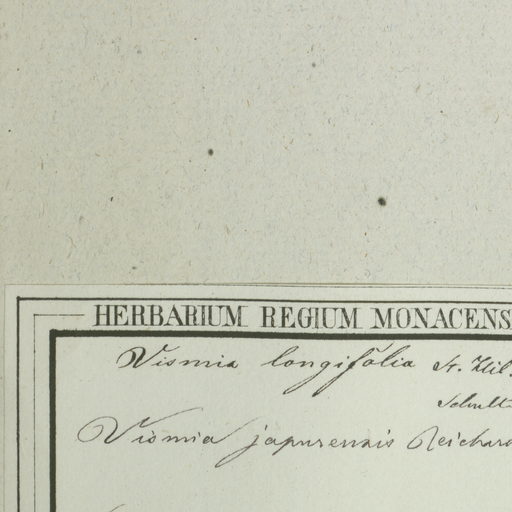 HERBARIUM REGIUM MONACENS
Vismia longifolia St. Hil.
Schult
Vismia japurensis Reichard